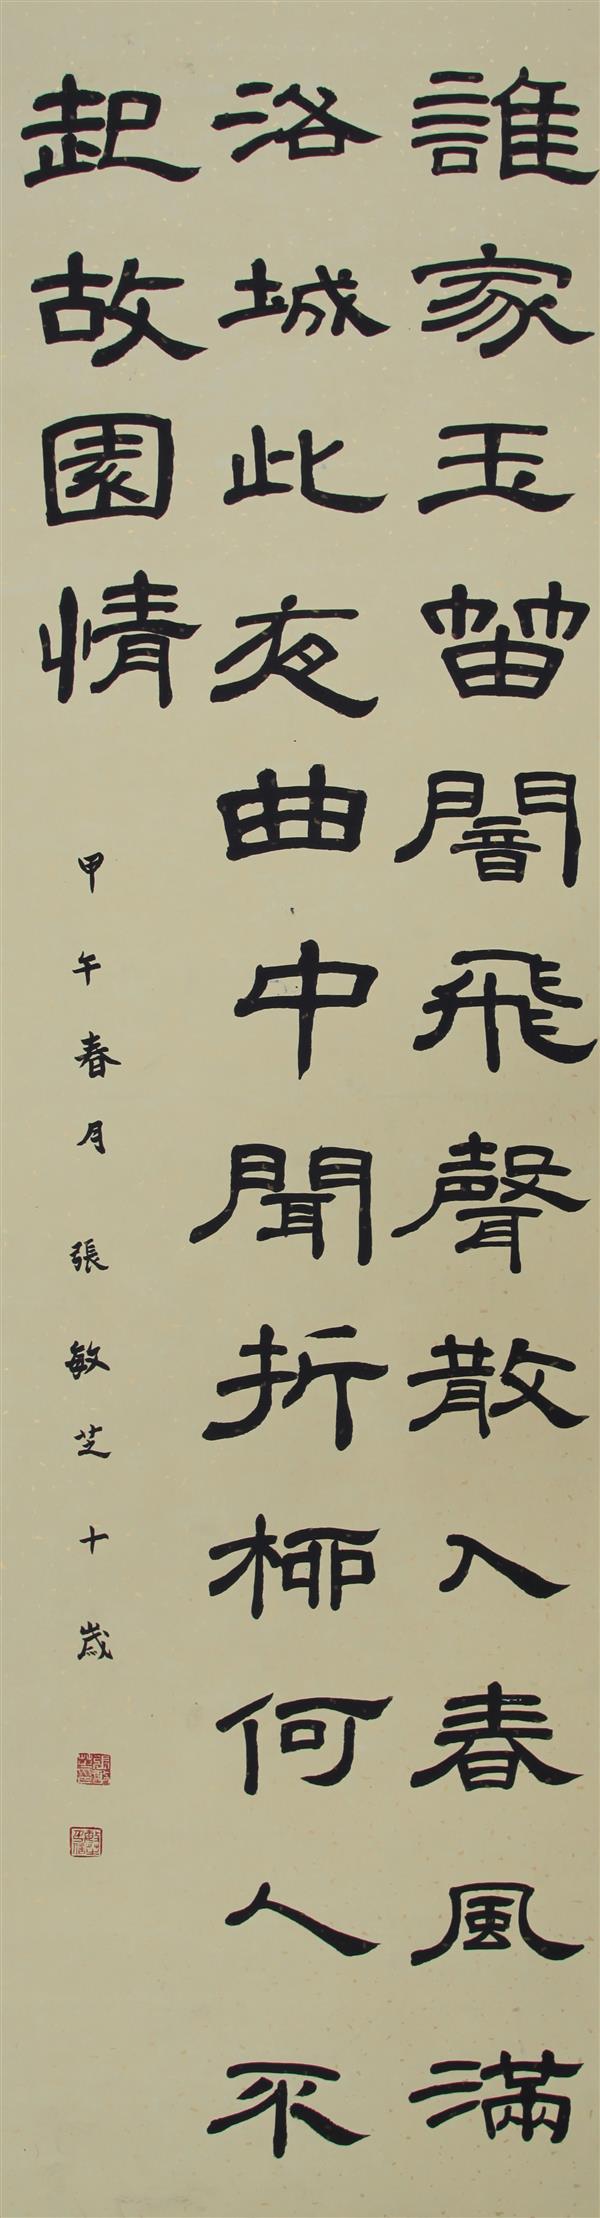 誰家玉笛闇飛聲散入春風滿
洛城此夜曲中聞折柳何人不
起故園情
甲午春月張敏芝十歲